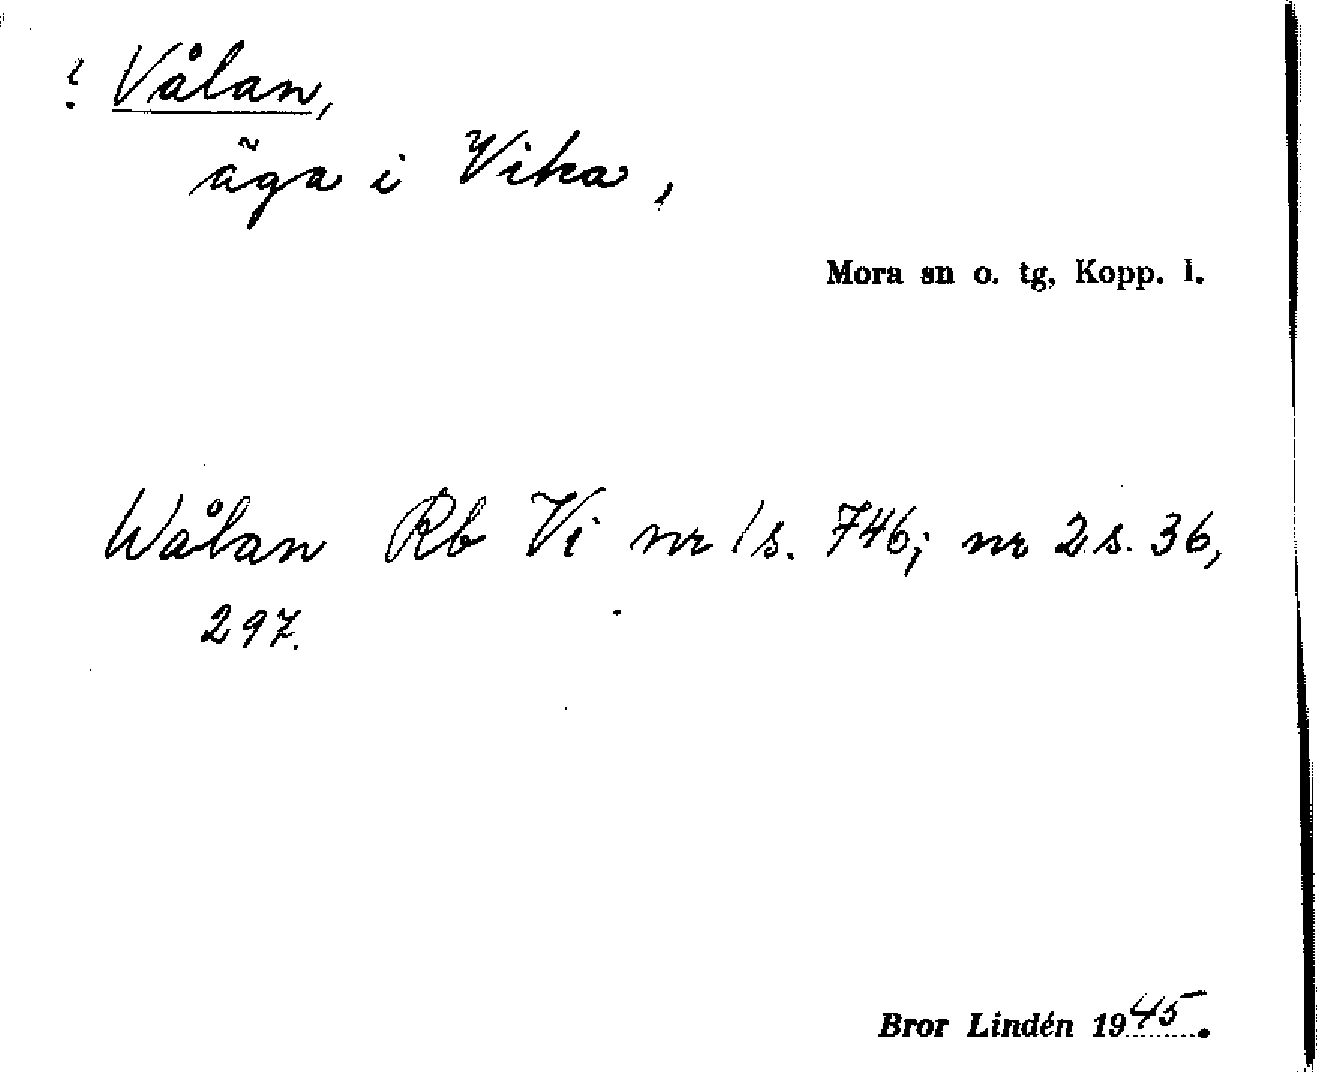 ! Vålan,
äga i Vika,
Mora sn o. tg, Kopp. l.
Wålan Rb Vi nr 1 s. 746; nr 2 s. 36,
297.
Bror Lindén 1945.